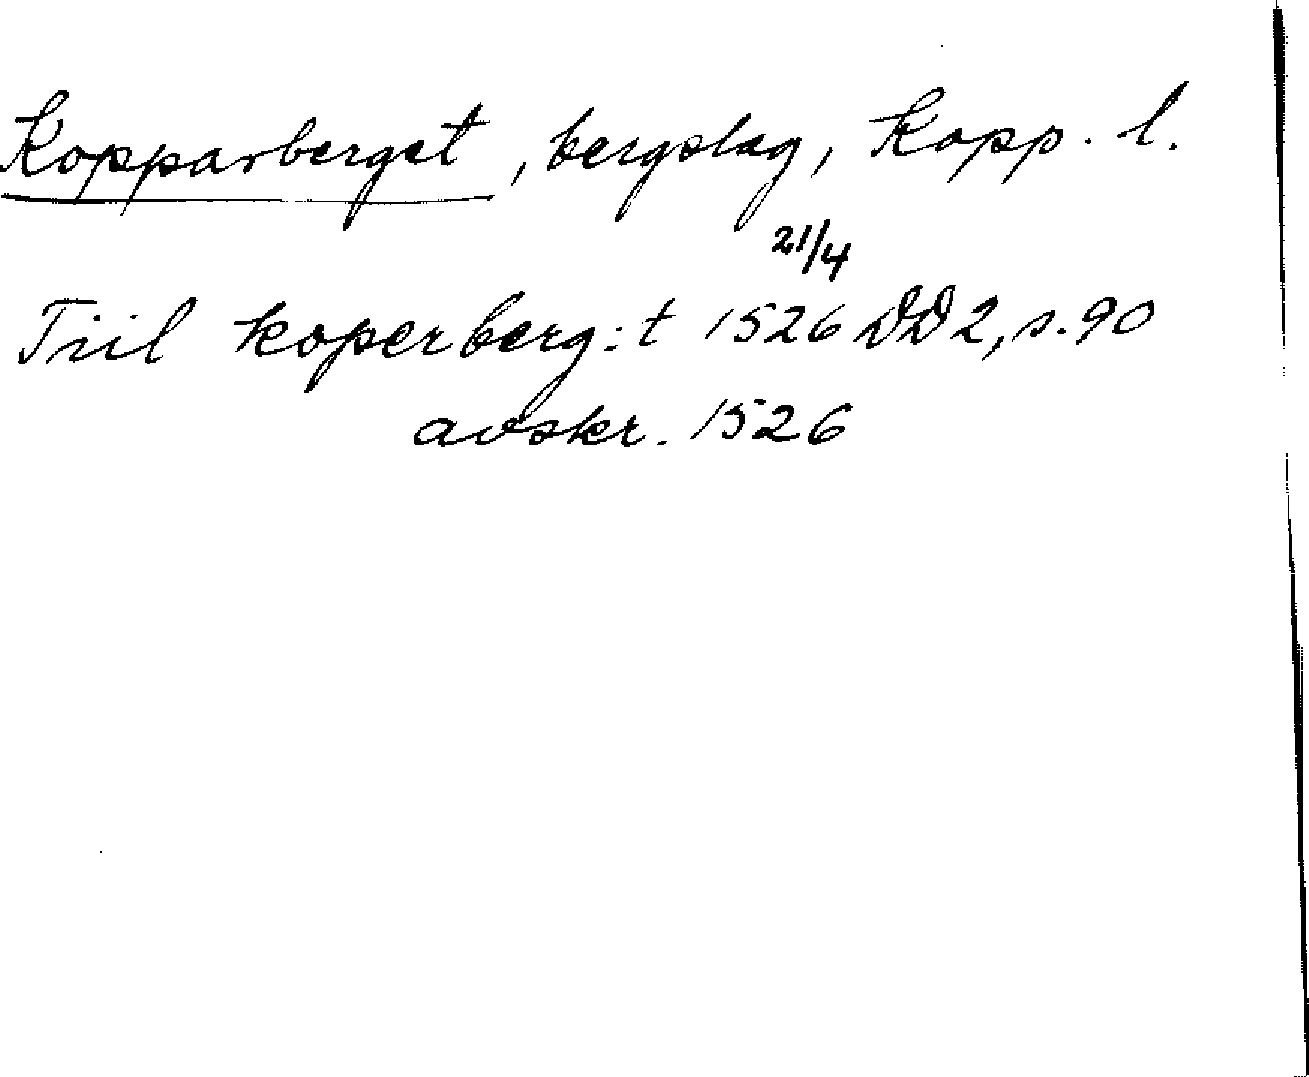 Kopparberget, bergslag, Kopp. l.
21/4
Tiil koperberg:t 1526 DD 2, s. 90
avskr. 1526